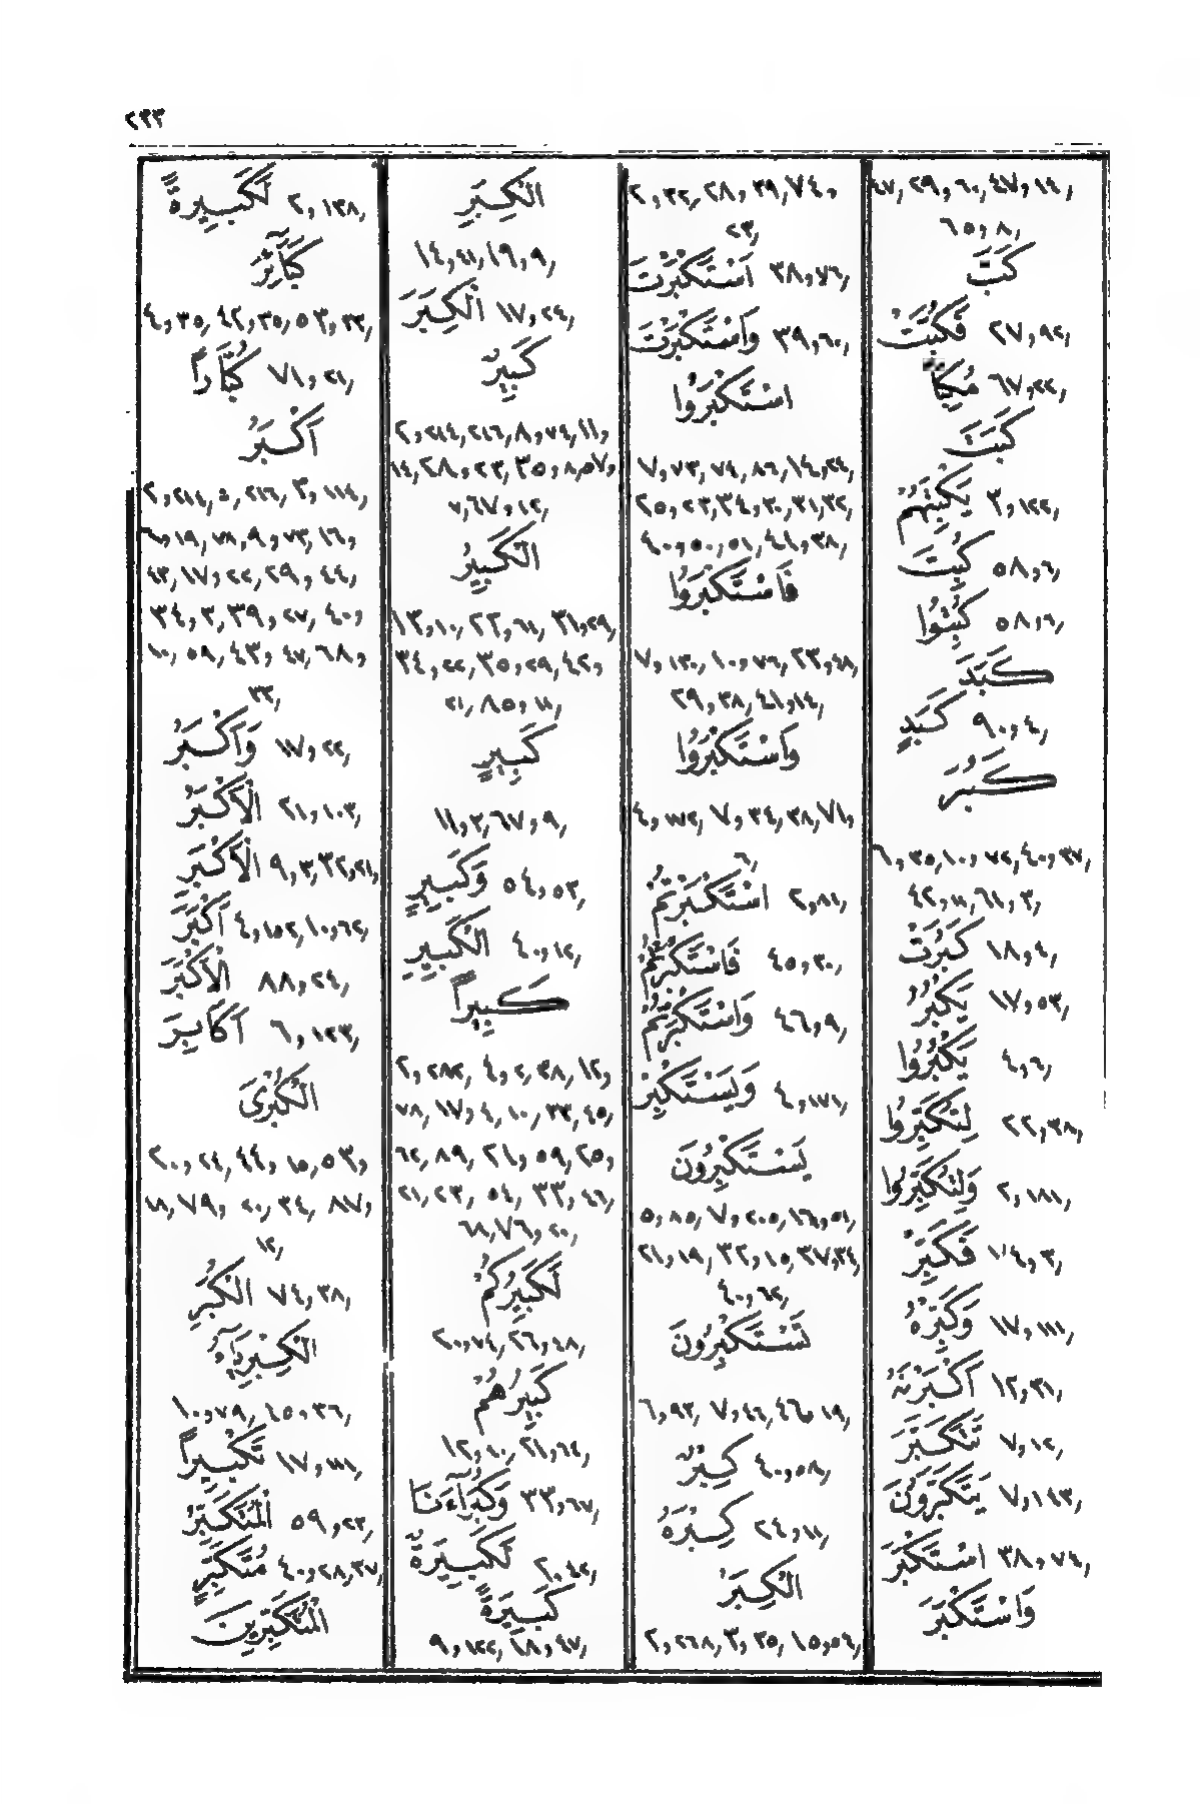 ٢٣٣
٤٧, ٢٩, ٦٠, ٤٧, ١٤,
٦٥, ٨,
كَبَّ
فَكُبَّتْ ٢٧, ٩٢,
مُكِبًّا ٦٧, ٢٢,
كَبَتَ
يَكْبِتَهُمْ ٣, ١٢٢,
كُبِتَ ٥٨, ٦,
كُبِتُوا ٥٨, ٦,
كَبَدَ
كَبَدٍ ٩٠, ٤,
كَبُرَ
٦, ٣٥, ١٠, ٧٢, ٤٠, ٣٧,
٤٢, ١١, ٦١, ٣,
كَبُرَتْ ١٨, ٤,
يَكْبُرُ ١٧, ٥٣,
يَكْبَرُوا ٤, ٦,
لِتُكَبِّرُوا ٢٢, ٣٨,
وَلِتُكَبِّرُوا ٢, ١٨١,
فَكَبِّرْ ٧٤, ٣,
وَكَبِّرْهُ ١٧, ١١١,
أَكْبَرْنَهُ ١٢, ٣١,
تَتَكَبَّرَ ٧, ١٢,
يَتَكَبَّرُونَ ٧, ١٤٣,
اسْتَكْبَرَ ٣٨, ٧٤,
وَاسْتَكْبَرَ
٢, ٣٢, ٢٨, ٣٩, ٧٤,
٢٣,
أَسْتَكْبَرْتَ ٣٨, ٧٦,
وَاسْتَكْبَرْتَ ٣٩, ٦٠,
اسْتَكْبَرُوا
٧, ٧٣, ٧٤, ٨٦, ١٤, ٢٤,
٢٥, ٢٣, ٣٤, ٣٠, ٣١, ٣٢,
٤٠, ٥٠, ٥١, ٤١, ٣٨,
فَاسْتَكْبَرُوا
٧, ١٣٠, ١٠, ٧٦, ٢٣, ٤٨,
٢٩, ٣٨, ٤١, ١٤,
وَاسْتَكْبَرُوا
٤, ١٧٢, ٧, ٣٤, ٣٨, ٧١,
٦,
اسْتَكْبَرْتُمْ ٢, ٨١,
فَاسْتَكْبَرْتُمْ ٤٥, ٣٠,
وَاسْتَكْبَرْتُمْ ٤٦, ٩,
وَيَسْتَكْبِرْ ٤, ١٧١,
يَسْتَكْبِرُونَ
٥, ٨٥, ٧, ٢٠٥, ١٦, ٥١,
٢١, ١٩, ٣٢, ١٥, ٣٧, ٣٤,
٤٠, ٦٢,
تَسْتَكْبِرُونَ
٦, ٩٣, ٧, ٤٦, ٤٦, ١٩,
كِبْرٌ ٤٠, ٥٨,
كِبْرَهُ ٢٤, ١١,
الْكِبَرُ
٢, ٢٦٨, ٣, ٣٥, ١٥, ٥٤,
الْكِبَرِ
١٤, ٤١, ١٩, ٩,
الْكِبَرَ ١٧, ٢٤,
كَبِيرٌ
٢, ٢١٤, ٢١٦, ٨, ٧٤, ١١,
١٤, ٢٨, ٢٣, ٣٥, ٨, ٥٧,
٧, ٦٧, ١٢,
الْكَبِيرُ
١٣, ١٠, ٢٢, ٦١, ٣١, ٢٩,
٣٤, ٢٢, ٣٥, ٢٩, ٤٢,
٢١, ٨٥, ١١,
كَبِيرٍ
١١, ٣, ٦٧, ٩,
وَكَبِيرٍ ٥٤, ٥٣,
الْكَبِيرِ ٤٠, ١٢,
كَبِيرًا
٢, ٢٨٢, ٤, ٢, ٣٨, ١٢,
٧٨, ١٧, ٤, ١٠, ٣٣, ٤٥,
٦٢, ٨٩, ٢١, ٥٩, ٢٥,
٢١, ٢٣, ٥٤, ٣٣, ٤٦,
٦٨, ٧٦, ٢٠,
لَكَبِيرُكُمُ
٢٠, ٧٤, ٢٦, ٤٨,
كَبِيرُهُمْ
١٢, ٨٠, ٢١, ٦٤,
وَكُبَرَاءَنَا ٣٣, ٦٧,
لَكَبِيرَةٌ ٢, ٤٢,
كَبِيرَةً
٩, ١٢٢, ١٨, ٤٧,
لَكَبِيرَةً ٢, ١٣٨,
كَبَائِرَ
٤, ٣٥, ٤٢, ٣٥, ٥٣, ٣٣,
كُبَّارًا ٧١, ٢١,
أَكْبَرُ
٢, ٢١٤, ٥, ٢١٦, ٣, ١١٤,
٦, ١٩, ٧٨, ٩, ٧٣, ١٦,
٤٣, ١٧, ٢٢, ٢٩, ٤٤,
٣٤, ٣, ٣٩, ٢٧, ٤٠,
١٠, ٥٨, ٤٣, ٤٧, ٦٨,
٣٢,
وَأَكْبَرُ ١٧, ٢٢,
الْأَكْبَرُ ٢١, ١٠٣,
الْأَكْبَرِ ٩, ٣, ٣٢, ٢١,
أَكْبَرَ ٤, ١٥٢, ١٠, ٦٢,
الْأَكْبَرَ ٨٨, ٢٤,
أَكَابِرَ ٦, ١٢٣,
الْكُبْرَى
٢٠, ٢٤, ٤٤, ١٥, ٥٣,
١٨, ٧٩, ٢٠, ٣٤, ٨٧,
١٢,
الْكُبَرِ ٧٤, ٣٨,
الْكِبْرِيَاءُ
١٠, ٧٩, ٤٥, ٣٦,
تَكْبِيرًا ١٧, ١١١,
الْمُتَكَبِّرُ ٥٩, ٢٣,
مُتَكَبِّرٍ ٤٠, ٢٨, ٣٧,
الْمُتَكَبِّرِينَ